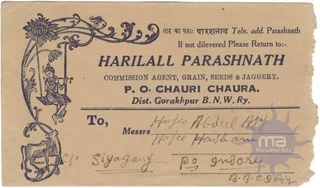 तार का पता: पारशनाथ Tele. add. Parashnath
If not dilevered Please Return to:-
HARILALL PARASHNATH
COMMISSION AGENT, GRAIN, SEEDS & JAGGERY.
P. O. CHAURI CHAURA.
Dist. Gorakhpur B. N. W. Ry.
To,
Messrs
Hajee Abdul
Hajee Hasham
Siyaganj
Po Indore
ma